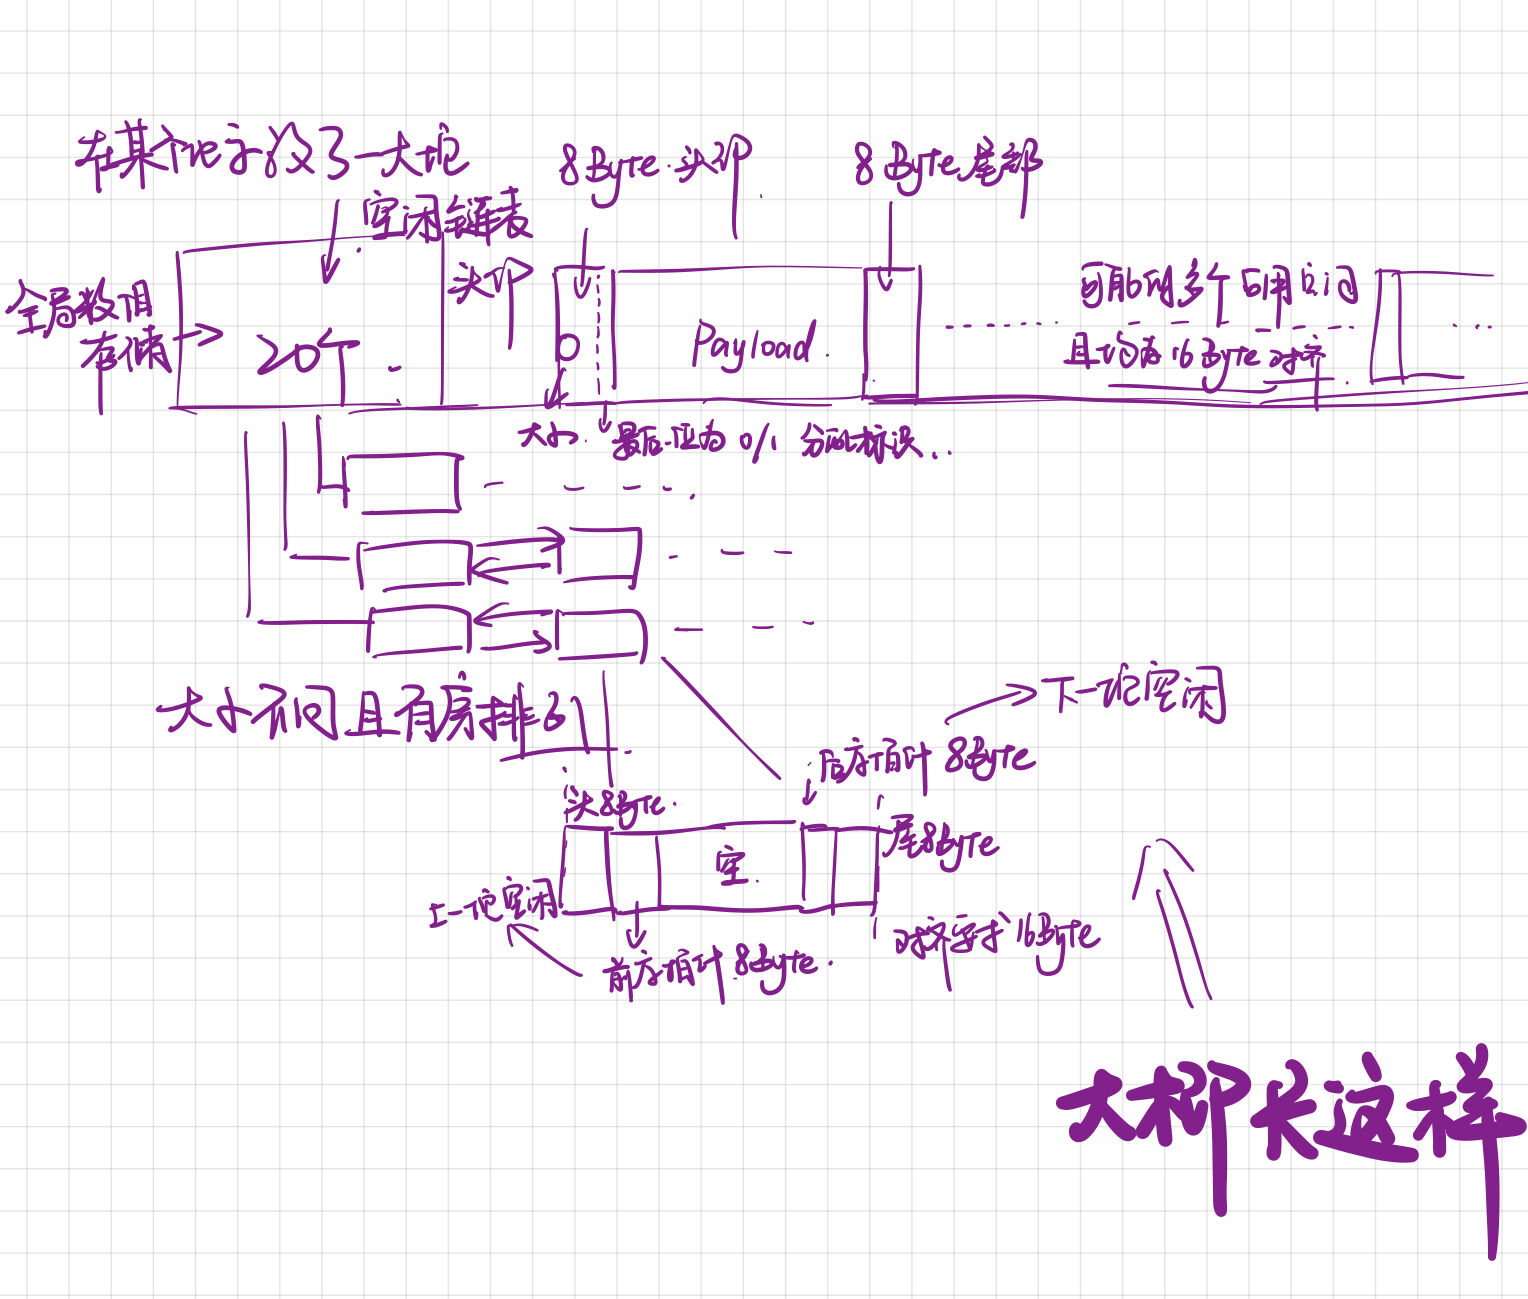 在某个地方挖了一大坨
8 Byte 头部
8 Byte 尾部
空闲链表
头部
全局数组
存储
20个
0
Payload
可能的多个可用空间
且均为16Byte对齐
大小
最后一位为 0/1 分配标识
大小不同且有序排列
下一坨空闲
后方指针 8Byte
头8Byte
尾8Byte
空
上一坨空闲
前方指针 8Byte
对齐要求 16Byte
大概长这样